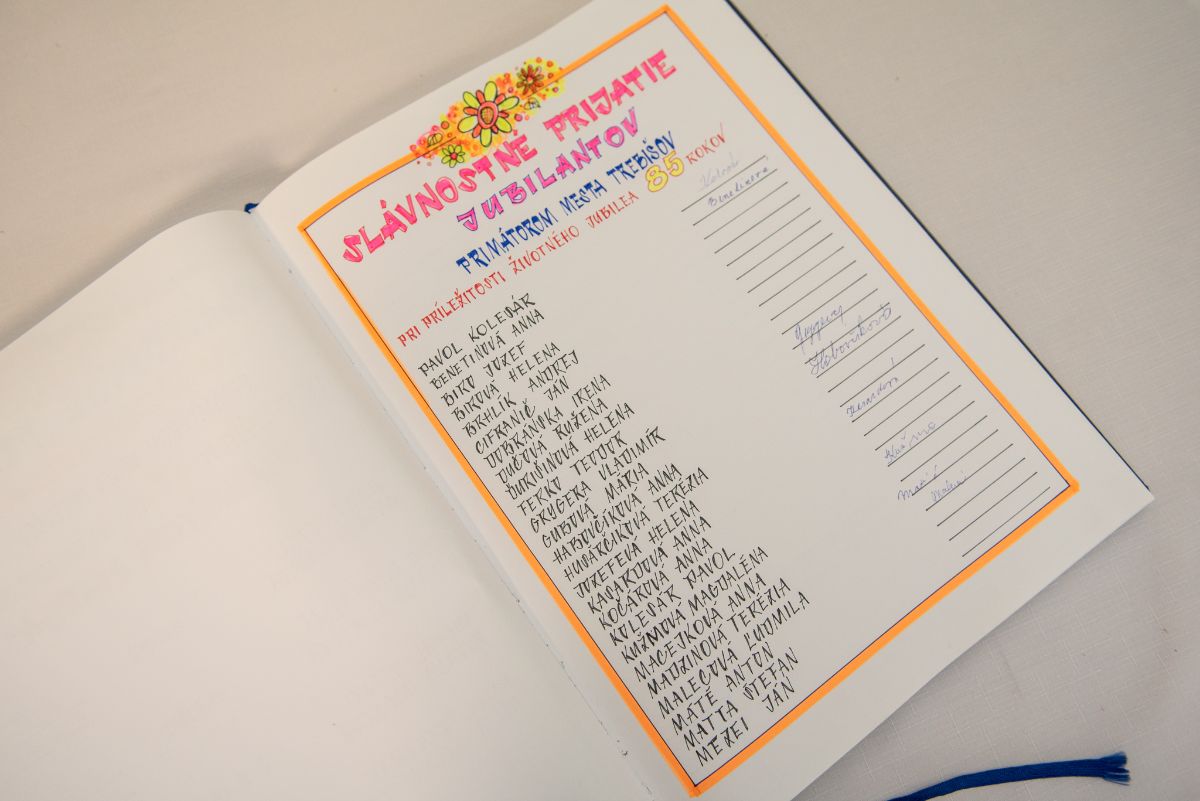 SLÁVNOSTNÉ PRIJATIE
JUBILANTOV
PRIMÁTOROM MESTA TREBIŠOV
PRI PRÍLEŽITOSTI ŽIVOTNÉHO JUBILEA 85 ROKOV
PAVOL KOLESÁR
BENETINOVÁ ANNA
BIRO JOZEF
BIROVÁ HELENA
BRHLIK ANDREJ
CIFRANIČ JÁN
DOBRANSKA IRENA
DUČOVÁ RUŽENA
DURIŠINOVÁ HELENA
FERKO TEODOR
GRYGERA VLADIMÍR
GUBOVÁ MARIA
HABOVČIKOVÁ ANNA
HUDÁRČIKOVÁ TERÉZIA
JOZEFEVÁ HELENA
KASARDOVÁ ANNA
KOČAROVÁ ANNA
KOLESÁR PAVOL
KUŽMOVÁ MAGDALÉNA
MACEJKOVÁ ANNA
MADZINOVÁ TERÉZIA
MALECOVÁ ĽUDMILA
MÁTÉ ANTON
MATTA ŠTEFAN
MEZEI JÁN